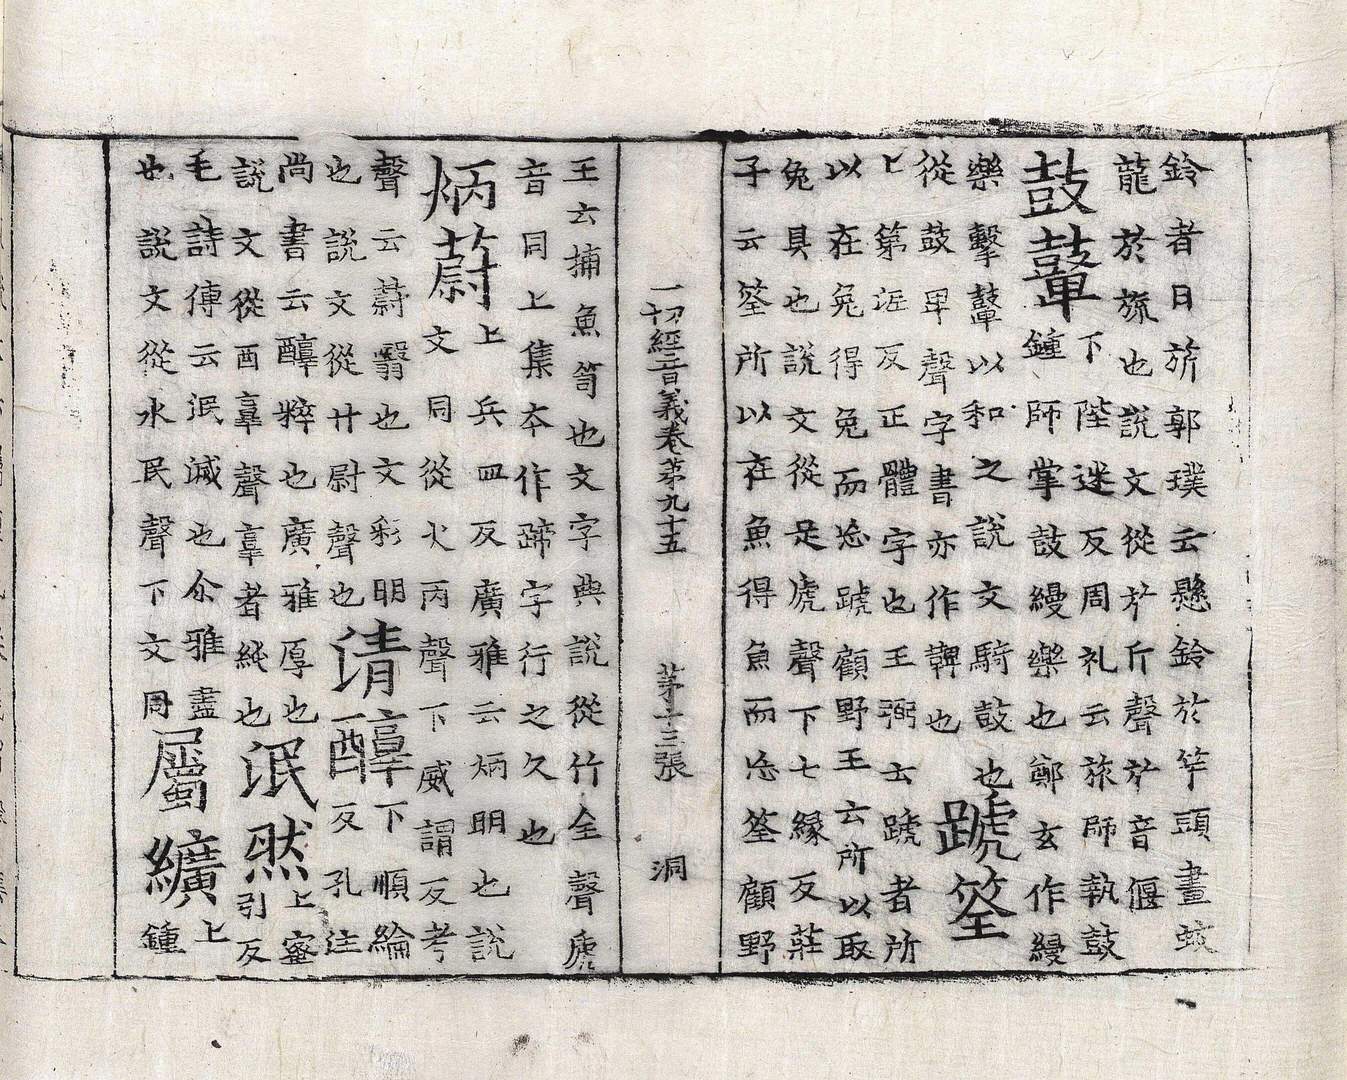 鈴者曰旂郭璞云懸鈴於竿頭畫蛟
龍於旒也說文從㫃斤聲㫃音偃
鼓鼙下陛迷反周礼云旅師執鼓
鍾師掌鼓縵樂也鄭玄作縵
樂擊鼓鼙以和之說文騎鼓也
從鼓卑聲字書亦作鞞也蹏筌
上第泥反正體字也王弼云蹏者所
以在兔得兔而忘蹏顧野王云所以取
兔具也說文從足虒聲下七緣反莊
子云筌所以在魚得魚而忘筌顧野
一切經音義卷第九十五 第十三張 洞
王云捕魚笱也文字典說從竹全聲虒
音同上集本作蹄字行之久也
炳蔚上兵皿反廣雅云炳明也說
文同從火丙聲下威謂反考
聲云蔚翳也文彩明也
也說文從廾尉聲也清醇下順綸反孔注
尚書云醇粹也廣雅厚也
說文從酉𦎫聲𦎫者純也泯然上蜜引反
毛詩傳云泯滅也尒雅盡
也說文從水民聲下文同屬纊上鍾